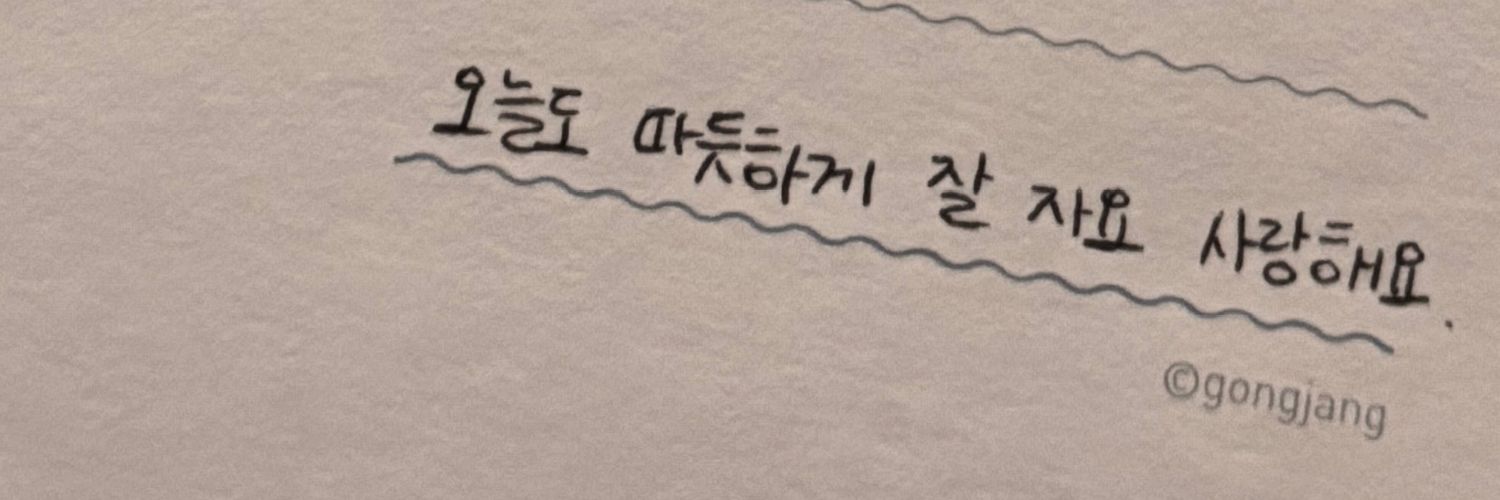 오늘도 따듯하게 잘 자요 사랑해요.
©gongjang